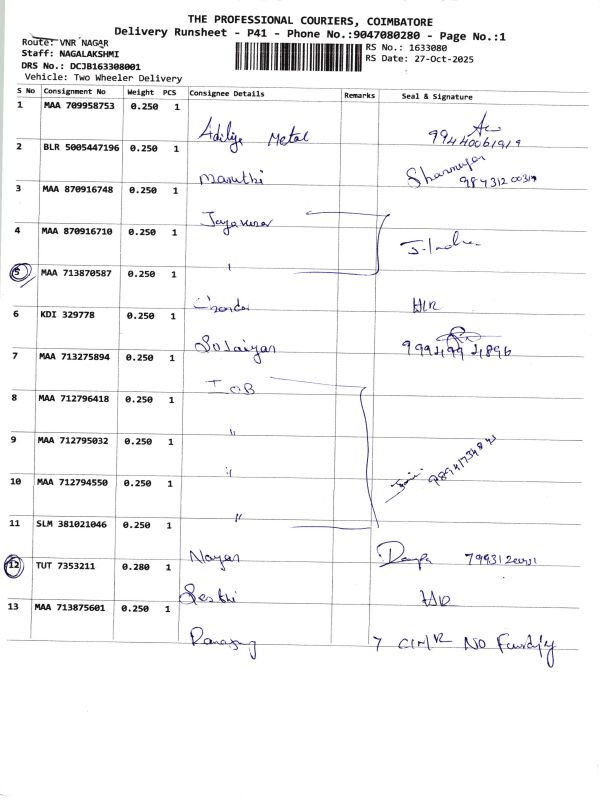 THE PROFESSIONAL COURIERS, COIMBATORE
Delivery Runsheet - P41 - Phone No.:9047080280 - Page No.:1
Route: VNR NAGAR
RS No.: 1633080
Staff: NAGALAKSHMI
RS Date: 27-Oct-2025
DRS No.: DCJB163308001
Vehicle: Two Wheeler Delivery
S No Consignment No Weight PCS Consignee Details Remarks Seal & Signature
1 MAA 709958753 0.250 1
Metal
99440061919
2 BLR 5005447196 0.250 1
Maruthi
3 MAA 870916748 0.250 1
4 MAA 870916710 0.250 1
"
5 MAA 713870587 0.250 1
6 KDI 329778 0.250 1
Solaiyan
7 MAA 713275894 0.250 1
IOB
8 MAA 712796418 0.250 1
"
9 MAA 712795032 0.250 1
"
10 MAA 712794550 0.250 1
"
11 SLM 381021046 0.250 1
12 TUT 7353211 0.280 1
13 MAA 713875601 0.250 1
7 NO